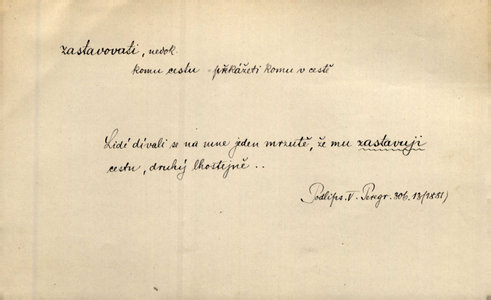 zastavovati, nedok.
komu cestu - překážeti komu v cestě
Lidé dívali se na mne jeden mrzutě, že mu zastavuji
cestu, druhý lhostejně ..
Podlips. V. Peregr. 306. 13 (1881)